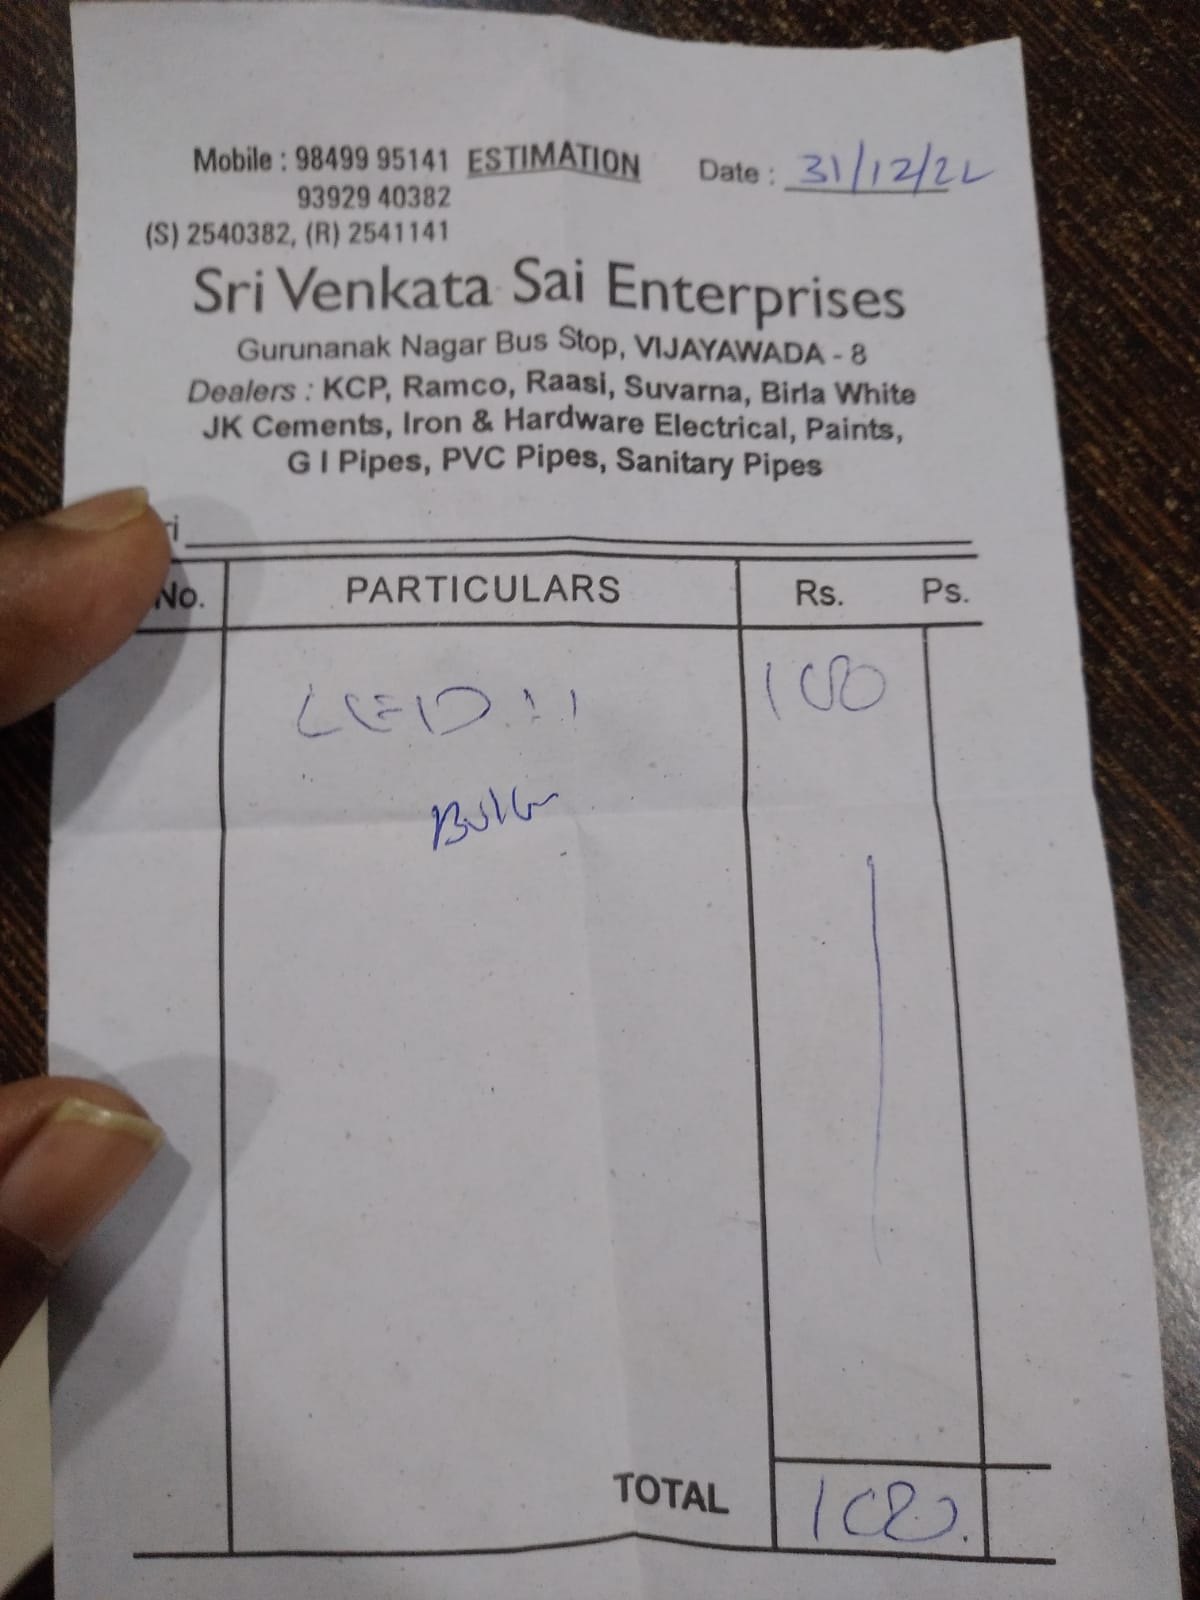 Mobile : 98499 95141 ESTIMATION Date : 31/12/22
93929 40382
(S) 2540382, (R) 2541141
Sri Venkata Sai Enterprises
Gurunanak Nagar Bus Stop, VIJAYAWADA - 8
Dealers : KCP, Ramco, Raasi, Suvarna, Birla White
JK Cements, Iron & Hardware Electrical, Paints,
G I Pipes, PVC Pipes, Sanitary Pipes
No. PARTICULARS Rs. Ps.
LED 100
Bulb
TOTAL 100.